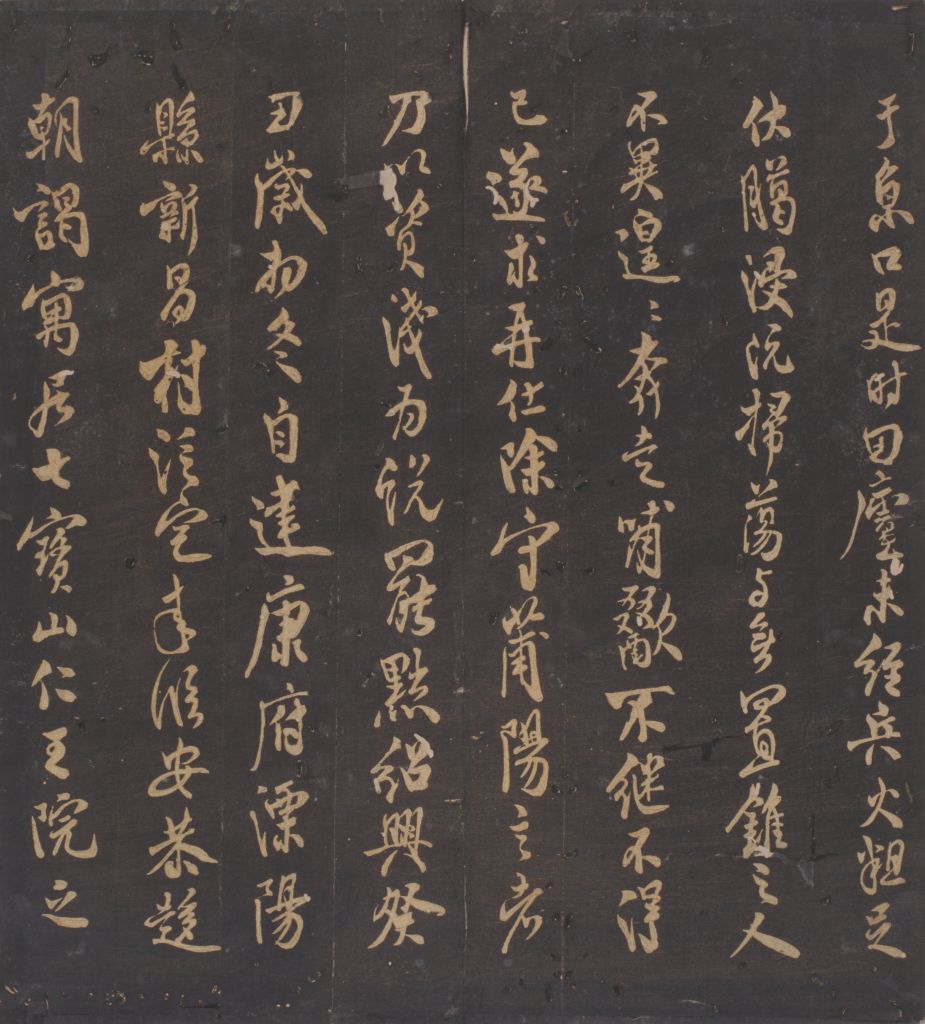 于息口是时田廬未經兵火粗足
伏臘浸沉掃蕩与無置錐之人
不異遑〻奔走哺歠不继不得
已遂求再仕除守莆陽言者
乃以資淺为説罷黜紹興癸
丑歲初冬自建康府溧陽
縣新昌村泛宅来臨安恭趍
朝謁寓居七寶山仁王院之